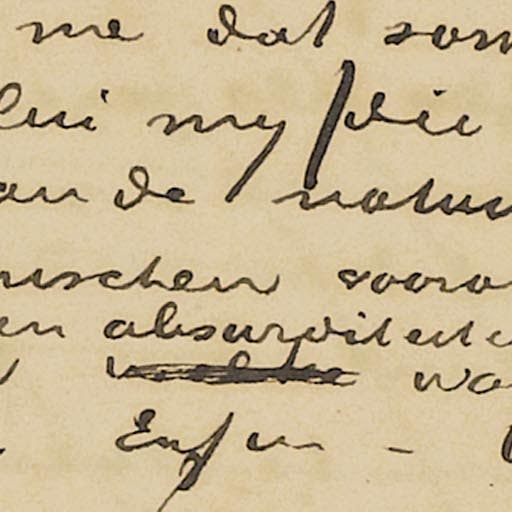 me dat som
lui my die
an de natuu
nschen vooro
en absurditeite
wa
Enfin -